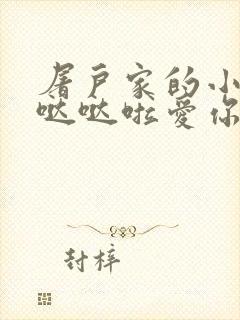 屠户家的小
哒哒啦爱你
封梓